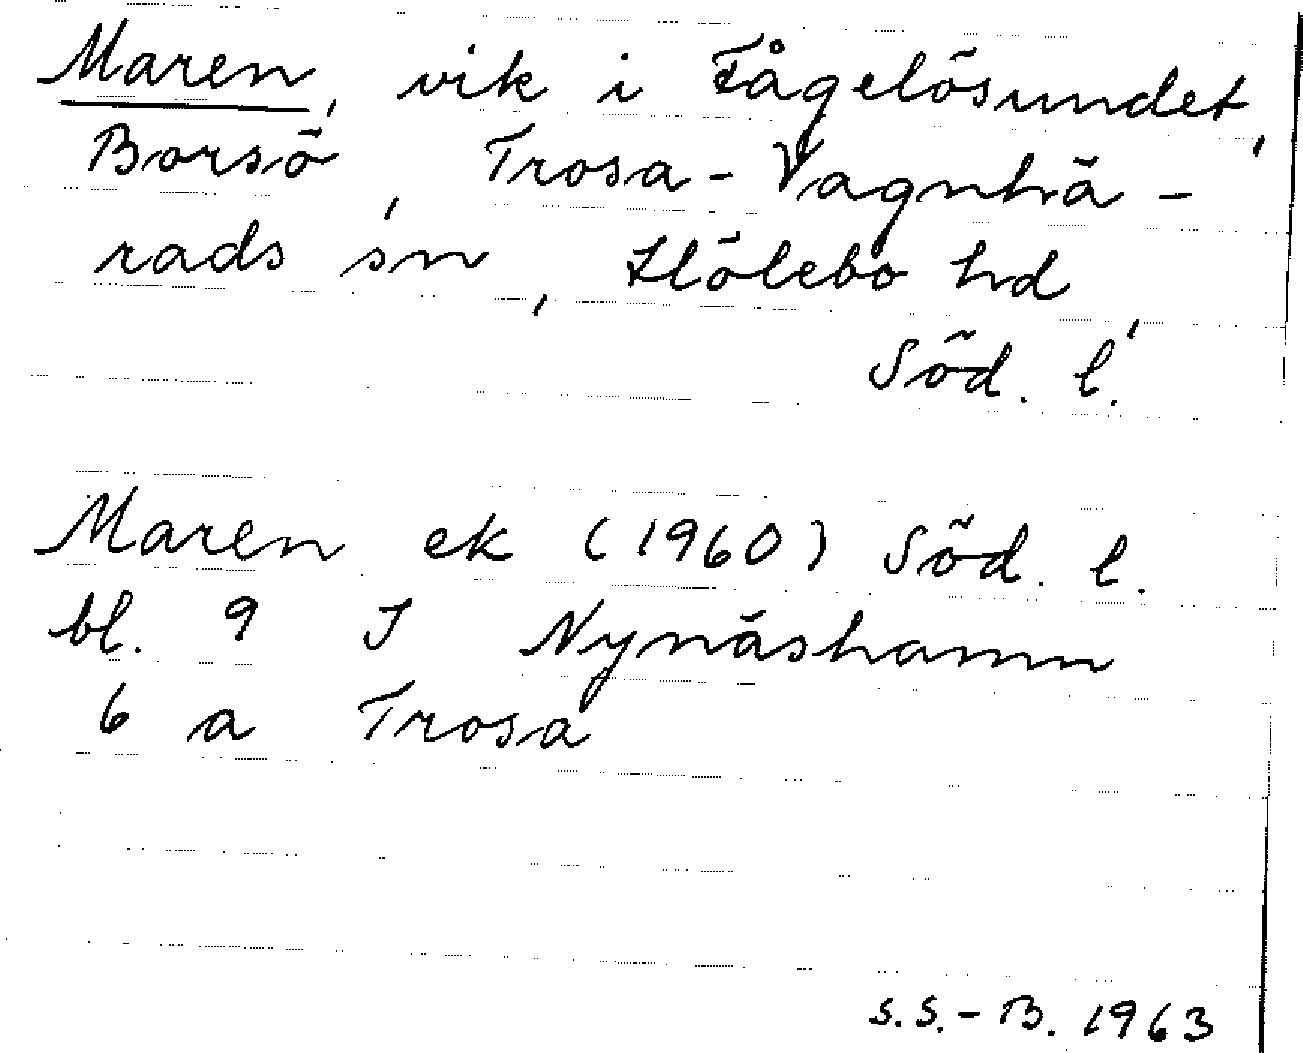 Maren, vik i Fågelösundet,
Borsö, Trosa-Vagnhä-
rads sn, Hölebo hd,
Söd. l.
Maren ek (1960) Söd. l.
bl. 9 I Nynäshamn
6 a Trosa
S.S.-B. 1963